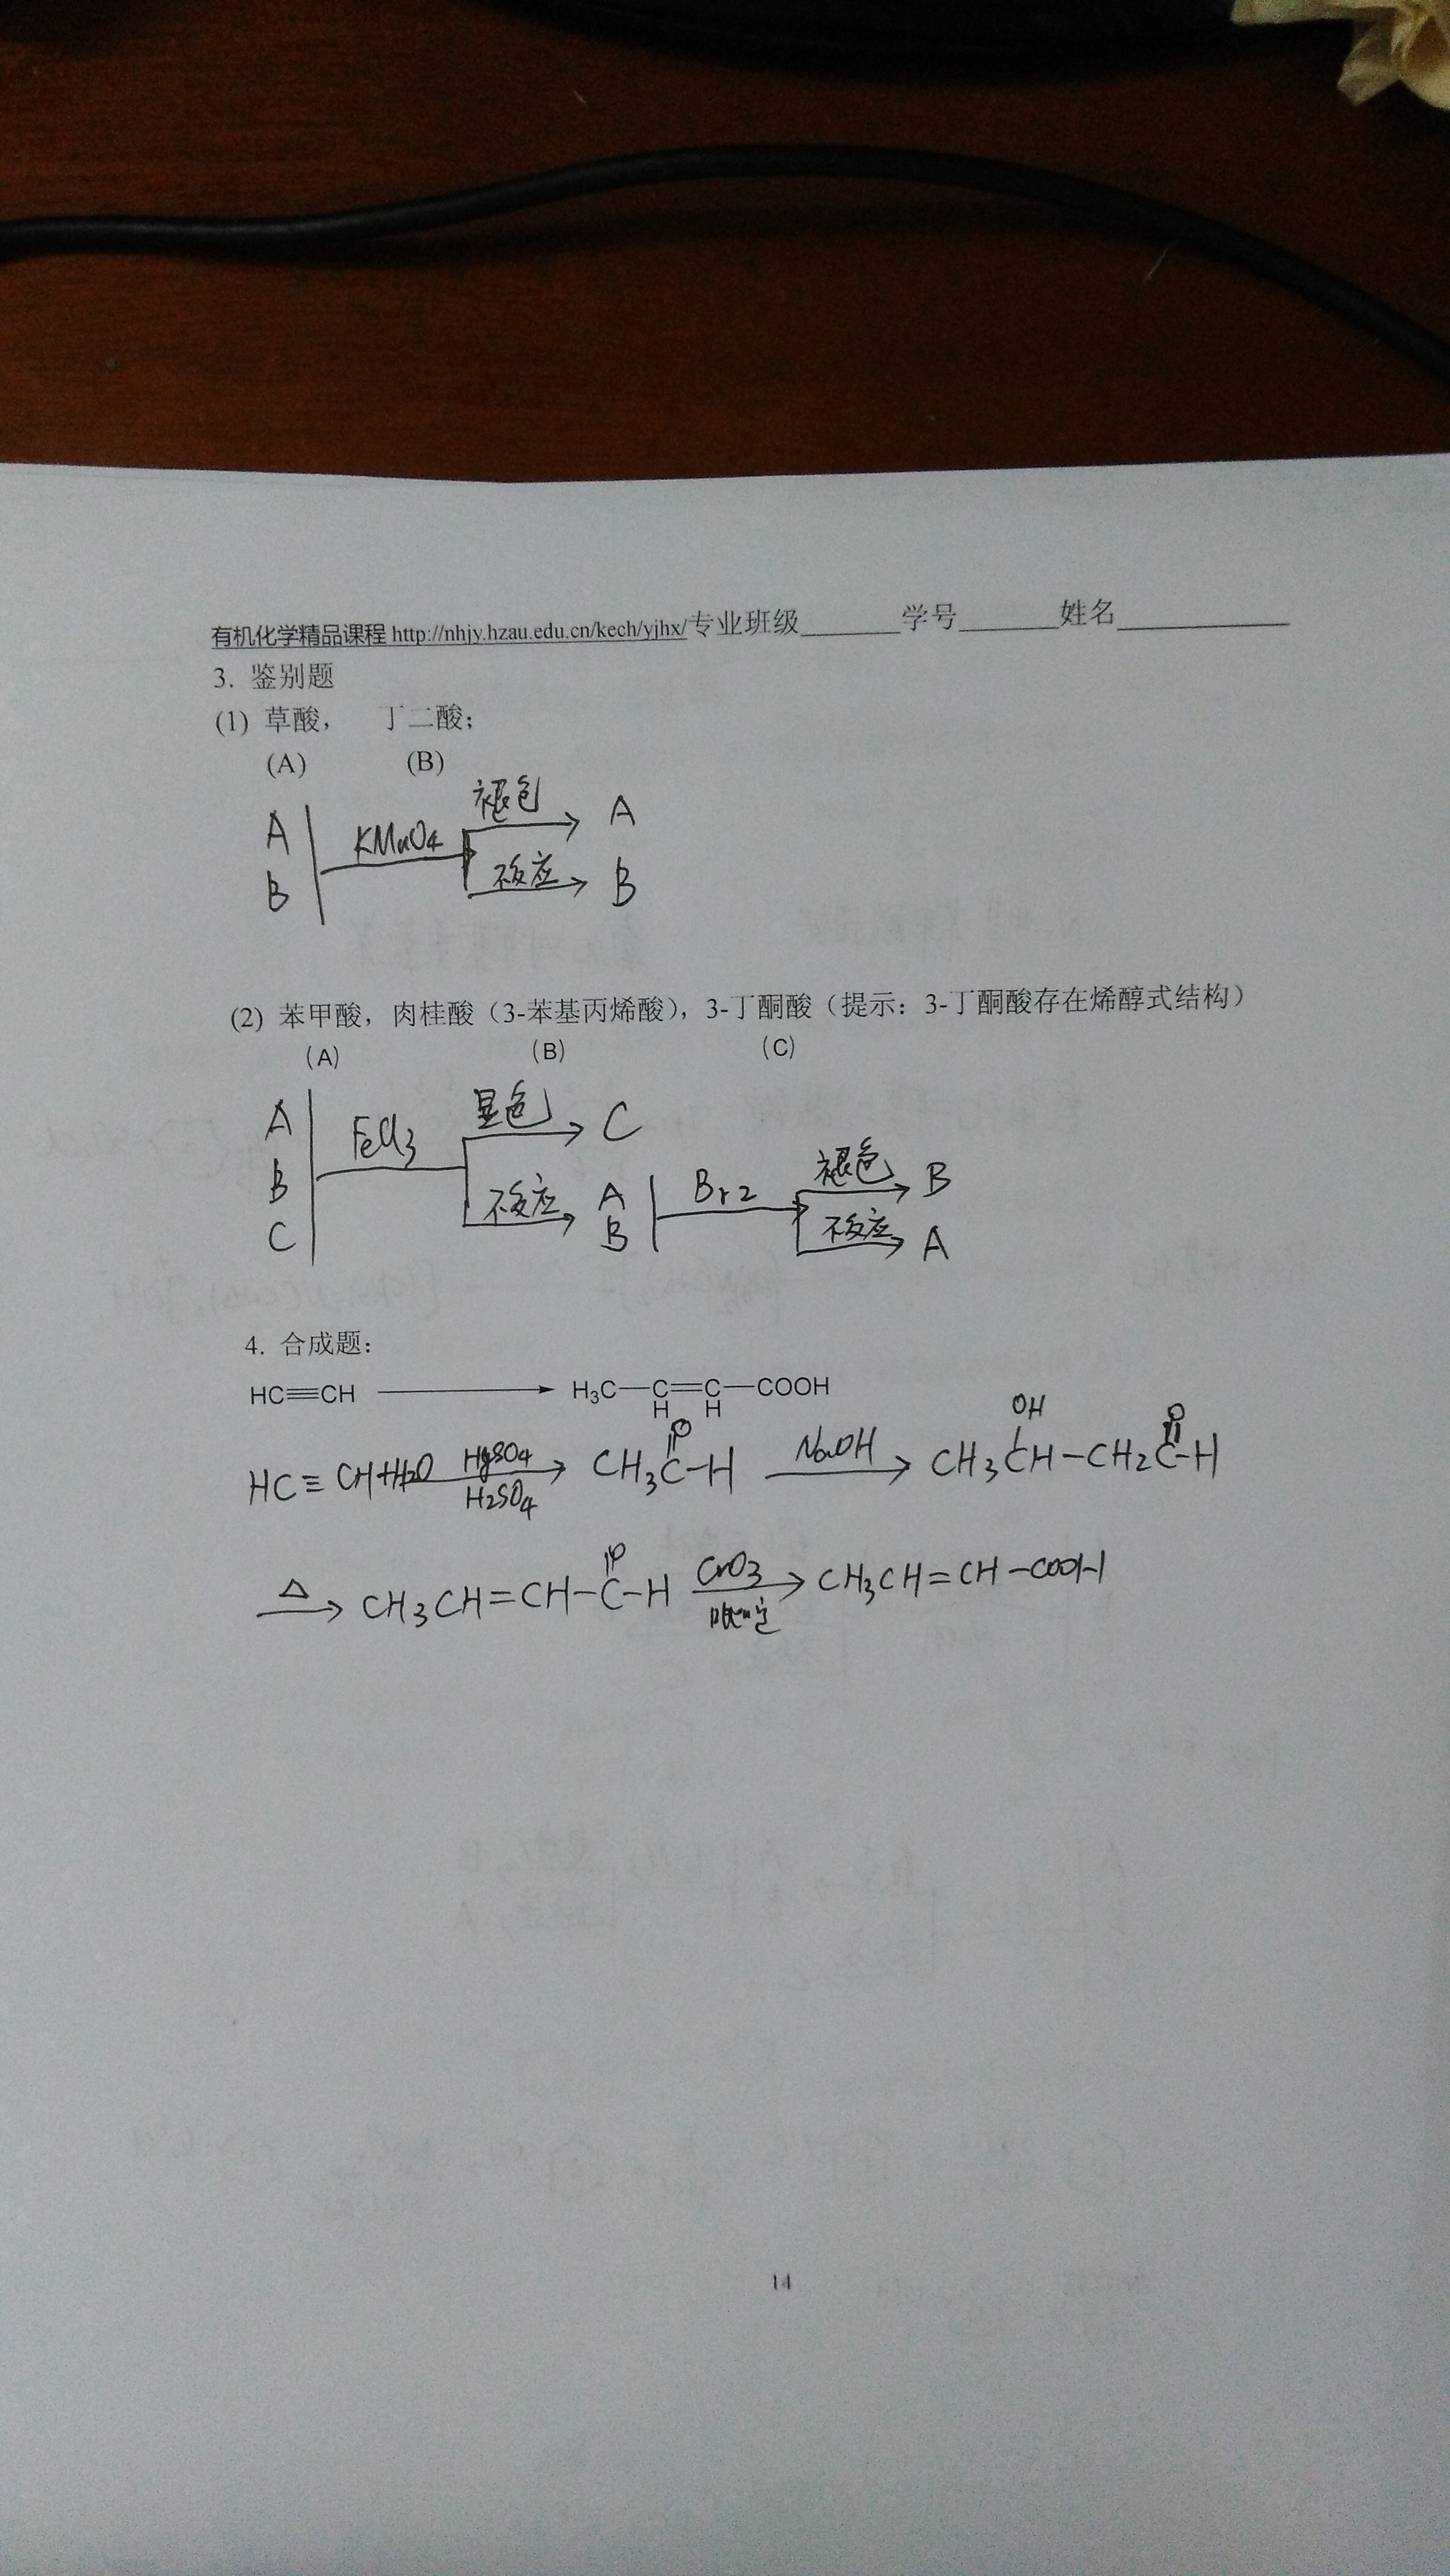 有机化学精品课程 http://nhjy.hzau.edu.cn/kech/yjhx/专业班级______学号______姓名__________
3. 鉴别题
(1) 草酸, 丁二酸;
(A) (B)
褪色
A KMnO4 A
B 不反应 B
(2) 苯甲酸, 肉桂酸（3-苯基丙烯酸）, 3-丁酮酸（提示：3-丁酮酸存在烯醇式结构）
(A) (B) (C)
A FeCl3 显色 C
B 不反应 A Br2 褪色 B
C B 不反应 A
4. 合成题：
HC≡CH H3C—C=C—COOH
H H
O OH O
HC≡CH+H2O HgSO4 CH3C-H NaOH CH3CH-CH2C-H
H2SO4
O
Δ CH3CH=CH-C-H CrO3 CH3CH=CH-COOH
14